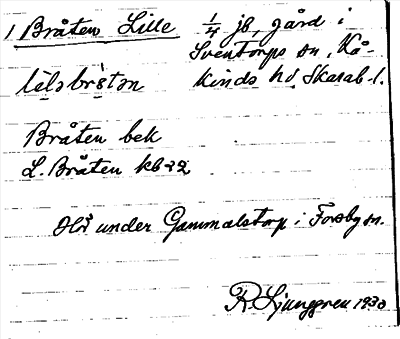 1 Bråten, Lille 1/4 jb, gård i
Sventorps sn, Kå-
kinds hd, Skarab. l.
lilabråtan
Bråten bek
L. Bråten kb 22
Hör under Gammalstorp i Forsby sn.
R. Ljunggren 1930